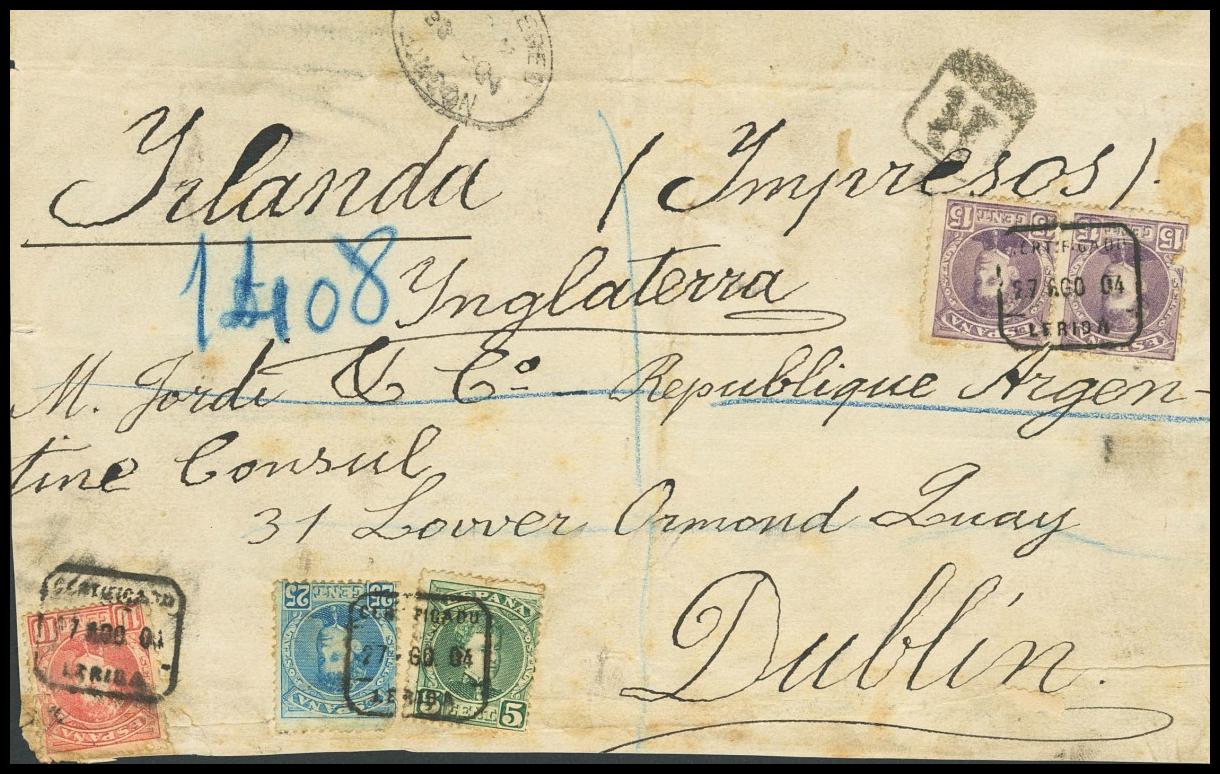 Irlanda (Impresos).
Inglaterra
1408
M. Jordi & Co. Republique Argen-
tine Consul
31 Lower Ormond Quay
Dublín.
R
15 CENT. 15
ESPAÑA
CERTIFICADO
27 AGO 04
LERIDA
CERTIFICADO
27 AGO 04
LERIDA
ESPAÑA
25 CENT 25
ESPAÑA
CERTIFICADO
27 AGO 04
LERIDA
ESPAÑA
5 CENT 5